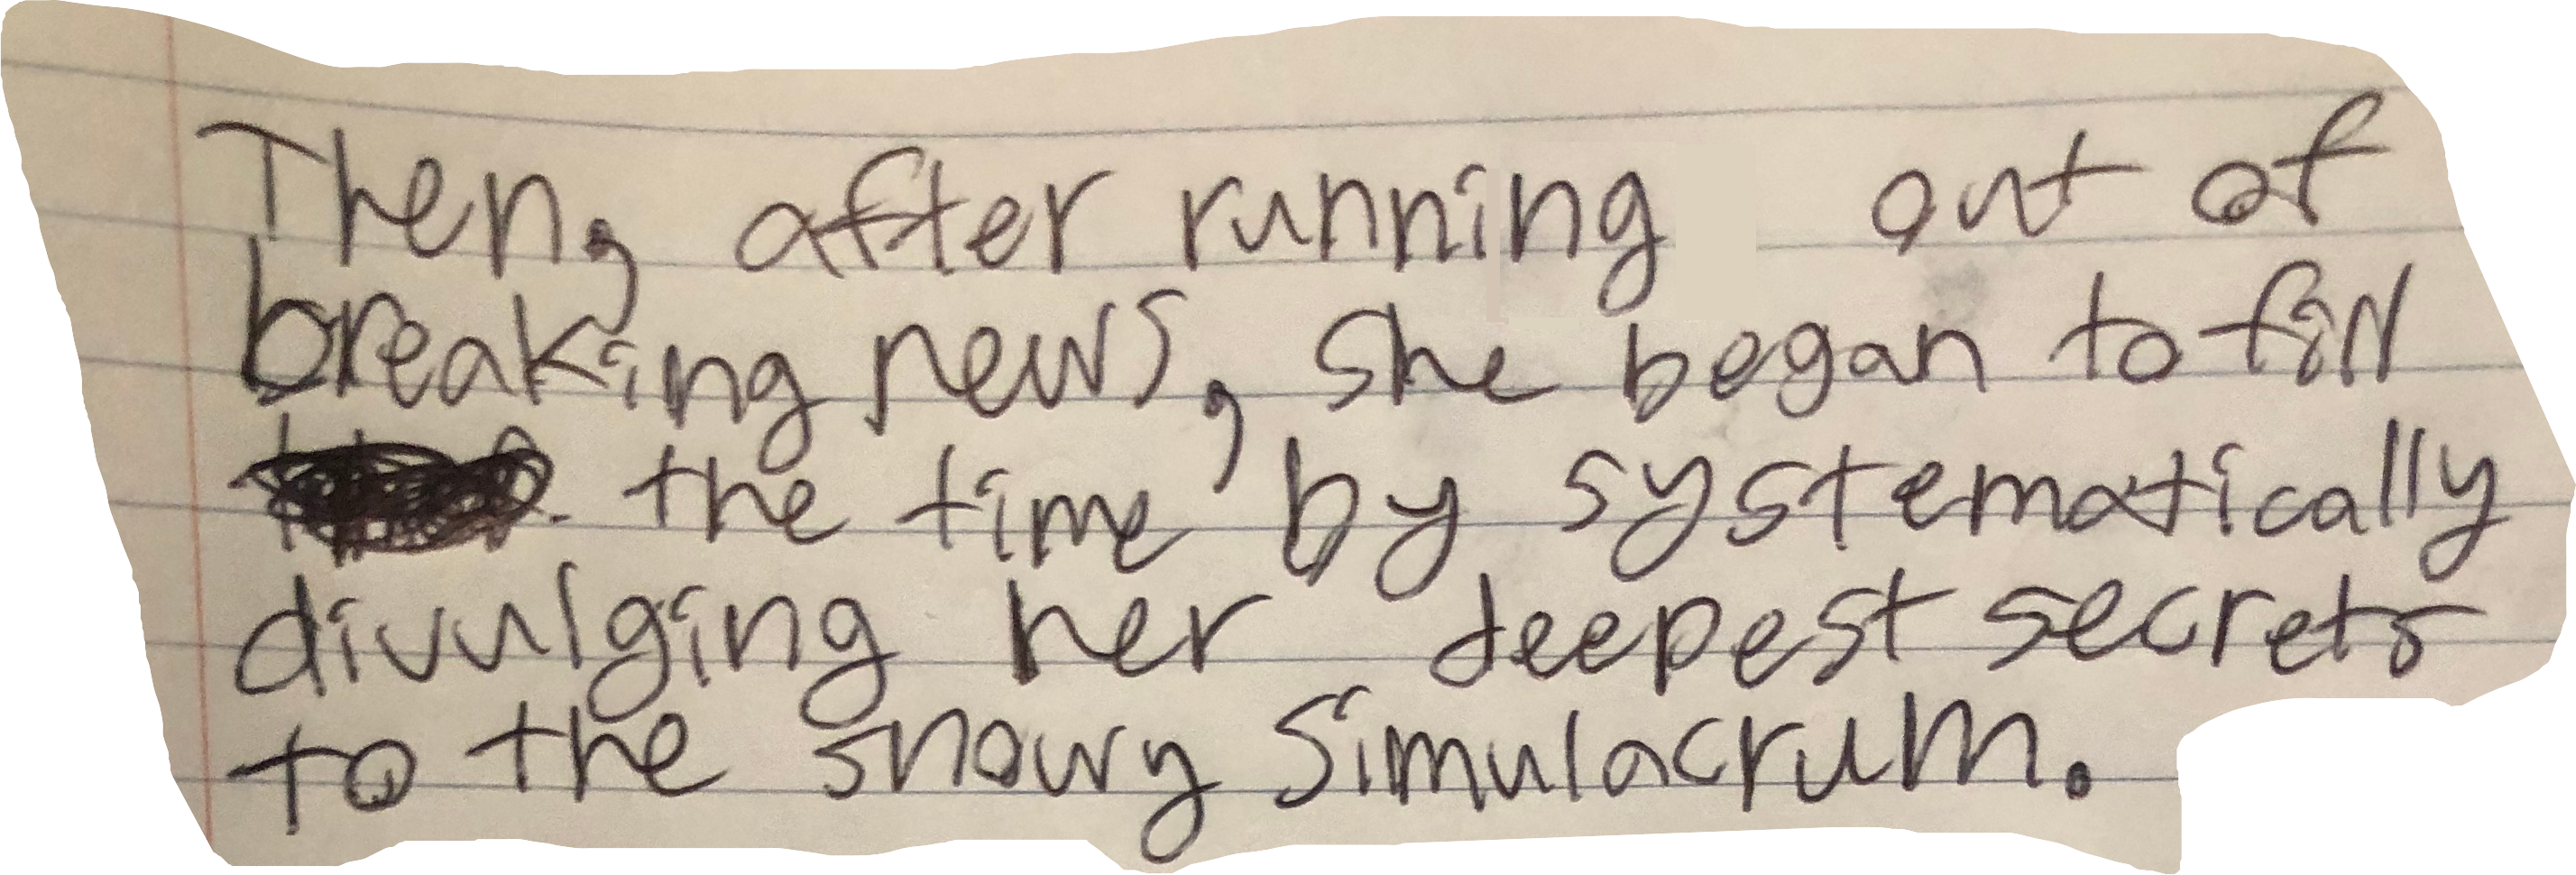 Then, after running out of
breaking news, she began to fill
the time by systematically
divulging her deepest secrets
to the snowy simulacrum.